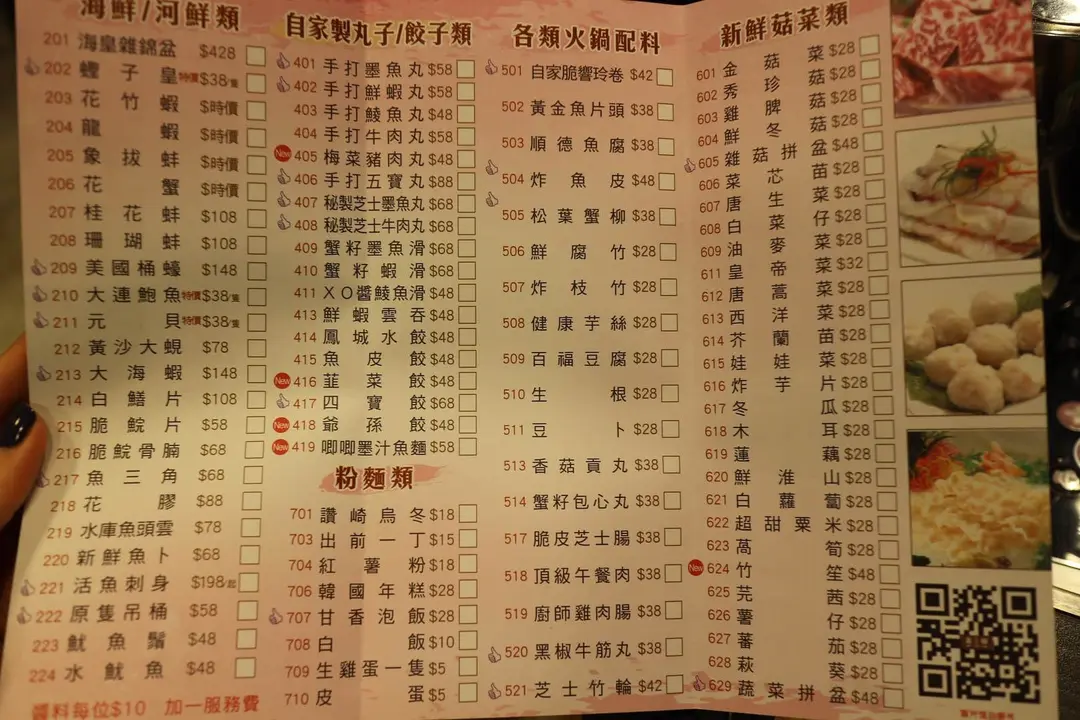 海鮮/河鮮類
201 海皇雜錦盆 $428
202 蟶子皇 特價$38/隻
203 花竹蝦 $時價
204 龍蝦 $時價
205 象拔蚌 $時價
206 花蟹 $時價
207 桂花蚌 $108
208 珊瑚蚌 $108
209 美國桶蠔 $148
210 大連鮑魚 特價$38/隻
211 元貝 特價$38/隻
212 黃沙大蜆 $78
213 大海蝦 $148
214 白鱔片 $108
215 脆鯇片 $58
216 脆鯇骨腩 $68
217 魚三角 $68
218 花膠 $88
219 水庫魚頭雲 $78
220 新鮮魚卜 $68
221 活魚刺身 $198起
222 原隻吊桶 $58
223 魷魚鬚 $48
224 水魷魚 $48
醬料每位$10 加一服務費
自家製丸子/餃子類
401 手打墨魚丸 $58
402 手打鮮蝦丸 $58
403 手打鯪魚丸 $48
404 手打牛肉丸 $58
New 405 梅菜豬肉丸 $48
406 手打五寶丸 $88
407 秘製芝士墨魚丸 $68
408 秘製芝士牛肉丸 $68
409 蟹籽墨魚滑 $68
410 蟹籽蝦滑 $68
411 XO醬鯪魚滑 $48
413 鮮蝦雲吞 $48
414 鳳城水餃 $48
415 魚皮餃 $48
New 416 韮菜餃 $48
417 四寶餃 $68
New 418 爺孫餃 $48
New 419 唧唧墨汁魚麵 $58
粉麵類
701 讚崎烏冬 $18
703 出前一丁 $15
704 紅薯粉 $18
706 韓國年糕 $28
707 甘香泡飯 $28
708 白飯 $10
709 生雞蛋一隻 $5
710 皮蛋 $5
各類火鍋配料
501 自家脆響玲卷 $42
502 黃金魚片頭 $38
503 順德魚腐 $38
504 炸魚皮 $48
505 松葉蟹柳 $38
506 鮮腐竹 $28
507 炸枝竹 $28
508 健康芋絲 $28
509 百福豆腐 $28
510 生根 $28
511 豆卜 $28
513 香菇貢丸 $38
514 蟹籽包心丸 $38
517 脆皮芝士腸 $38
518 頂級午餐肉 $38
519 廚師雞肉腸 $38
520 黑椒牛筋丸 $38
521 芝士竹輪 $42
新鮮菇菜類
601 金菇菜 $28
602 秀珍菇 $28
603 雞脾菇 $28
604 鮮冬菇 $28
605 雜菇拼盆 $48
606 菜芯苗 $28
607 唐生菜 $28
608 白菜仔 $28
609 油麥菜 $28
611 皇帝菜 $32
612 唐蒿菜 $28
613 西洋菜 $28
614 芥蘭苗 $28
615 娃娃菜 $28
616 炸芋片 $28
617 冬瓜 $28
618 木耳 $28
619 蓮藕 $28
620 鮮淮山 $28
621 白蘿蔔 $28
622 超甜粟米 $28
623 萵筍 $28
New 624 竹笙 $48
625 芫茜 $28
626 薯仔 $28
627 蕃茄 $28
628 萩葵 $28
629 蔬菜拼盆 $48